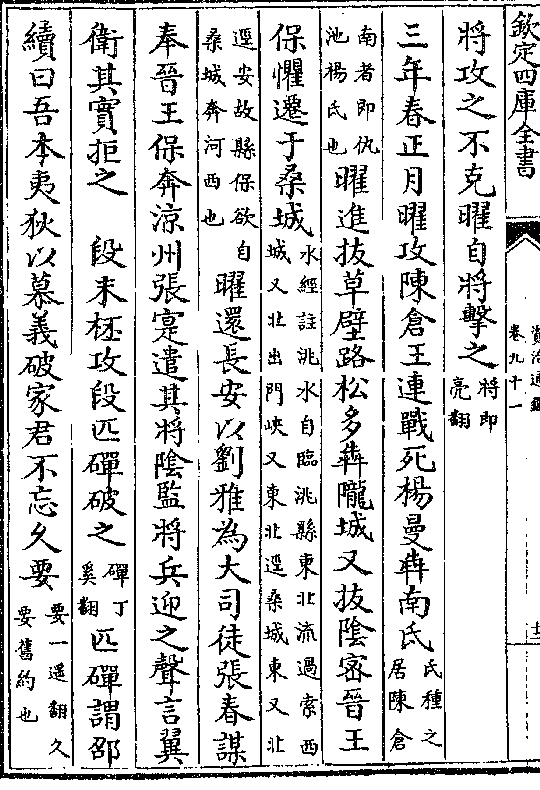 欽定四庫全書
資治通鑑
卷九十一
將攻之不克曜自將擊之將即
亮翻
三年春正月曜攻陳倉王連戰死楊曼犇南氐氐種之
居陳倉
南者即仇
池楊氏也曜進拔草壁路松多犇隴城又拔陰密晉王
保懼遷于桑城水經註洮水自臨洮縣東北流過索西
城又北出門峽又東北逕桑城東又北
逕安故縣保欲自
桑城奔河西也曜還長安以劉雅為大司徒張春謀
奉晉王保奔涼州張寔遣其將陰監將兵迎之聲言翼
衛其實拒之 段末柸攻段匹磾破之磾丁
奚翻匹磾謂邵
續曰吾本夷狄以慕義破家君不忘久要要一遥翻久
要舊約也